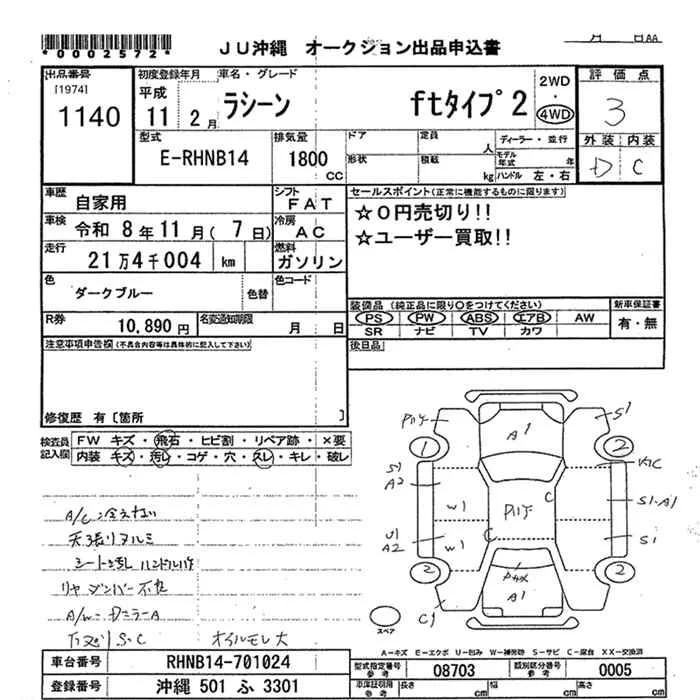 *0002572*
JU沖縄 オークション出品申込書
月 日AA
出品番号 初度登録年月 車名・グレード 2WD・4WD 評価点
[1974] 1140
平成 11 2月
ラシーン ftタイプ2
3
外装 内装
D C
型式 排気量 ドア 定員 人 ディーラー・並行
E-RHNB14 1800 CC 形状 積載 kg モデル年式 年
ハンドル 左・右
車歴 自家用 シフト FAT
セールスポイント(正常に機能するものに限ります)
☆0円売切り!!
☆ユーザー買取!!
車検 令和 8年11月( 7日) 冷房 AC
走行 21万4千004 km 燃料 ガソリン
色 ダークブルー 色替 色コード
装備品 (純正品に限り○をつけてください) 新車保証書
PS PW ABS エアB AW 有・無
SR ナビ TV カワ
R券 10,890円 名変通知期限 月 日
後日品
注意事項申告欄(不具合内容等は具体的に記入して下さい)
修復歴 有[箇所 ]
検査員記入欄
FW キズ・飛石・ヒビ割・リペア跡・×要
内装 キズ・汚し・コゲ・穴・スレ・キレ・破レ
A/C:冷えない
天張リヌルミ
A1
S1
1
2
S1
A2
W1
C
S1・A1
U1
A2
W1
C
S1
2
2
A1
C1
スペア
A-キズ E-エクボ U-凹み W-補修跡 S-サビ C-腐食 XX-交換済
車台番号 RHNB14-701024
型式指定番号 参考 08703 類別区分番号 参考 0005
登録番号 沖縄 501 ふ 3301
車庫証明用 参考 長さ cm 幅 cm 高さ cm